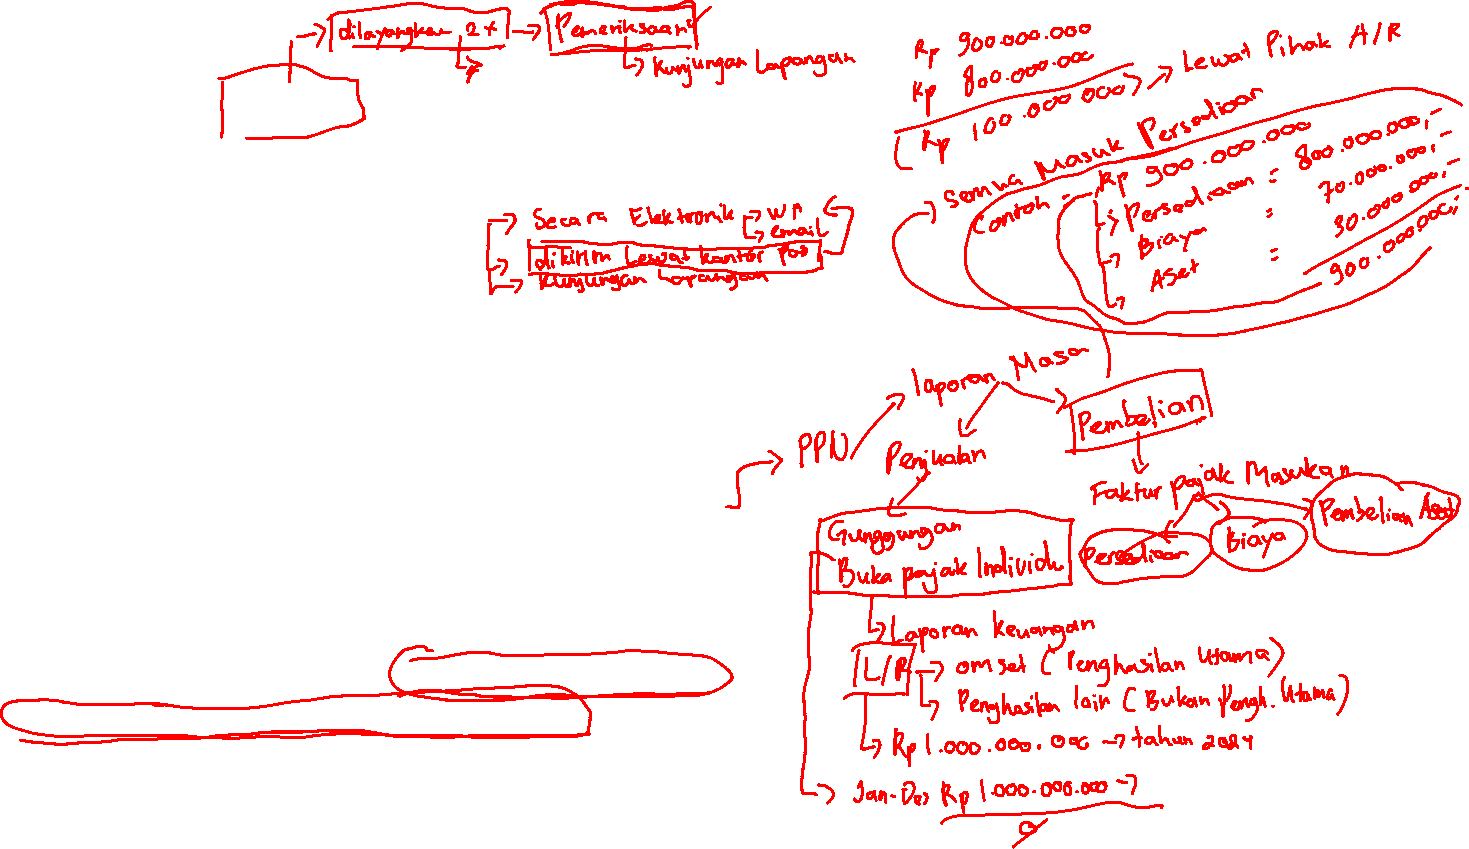 dilayangkan 2x
Pemeriksaan
Kunjungan Lapangan
Rp 900.000.000
Rp 800.000.000
Rp 100.000.000
Lewat Pihak A/R
Semua Masuk Persediaan
Contoh = Rp 900.000.000
Persediaan = 800.000.000,-
Biaya = 70.000.000,-
Aset = 30.000.000,-
900.000.000,-
Secara Elektronik
WA
email
dikirim Lewat kantor pos
Kunjungan Lapangan
PPN
laporan Masa
Penjualan
Pembelian
Faktur pajak Masukan
Persediaan
Biaya
Pembelian Aset
Gunggungan
Buka pajak Individu
Laporan Keuangan
L/R
omset (Penghasilan Utama)
Penghasilan lain (Bukan Pengh. Utama)
Rp 1.000.000.000 → tahun 2024
Jan-Des Rp 1.000.000.000 →